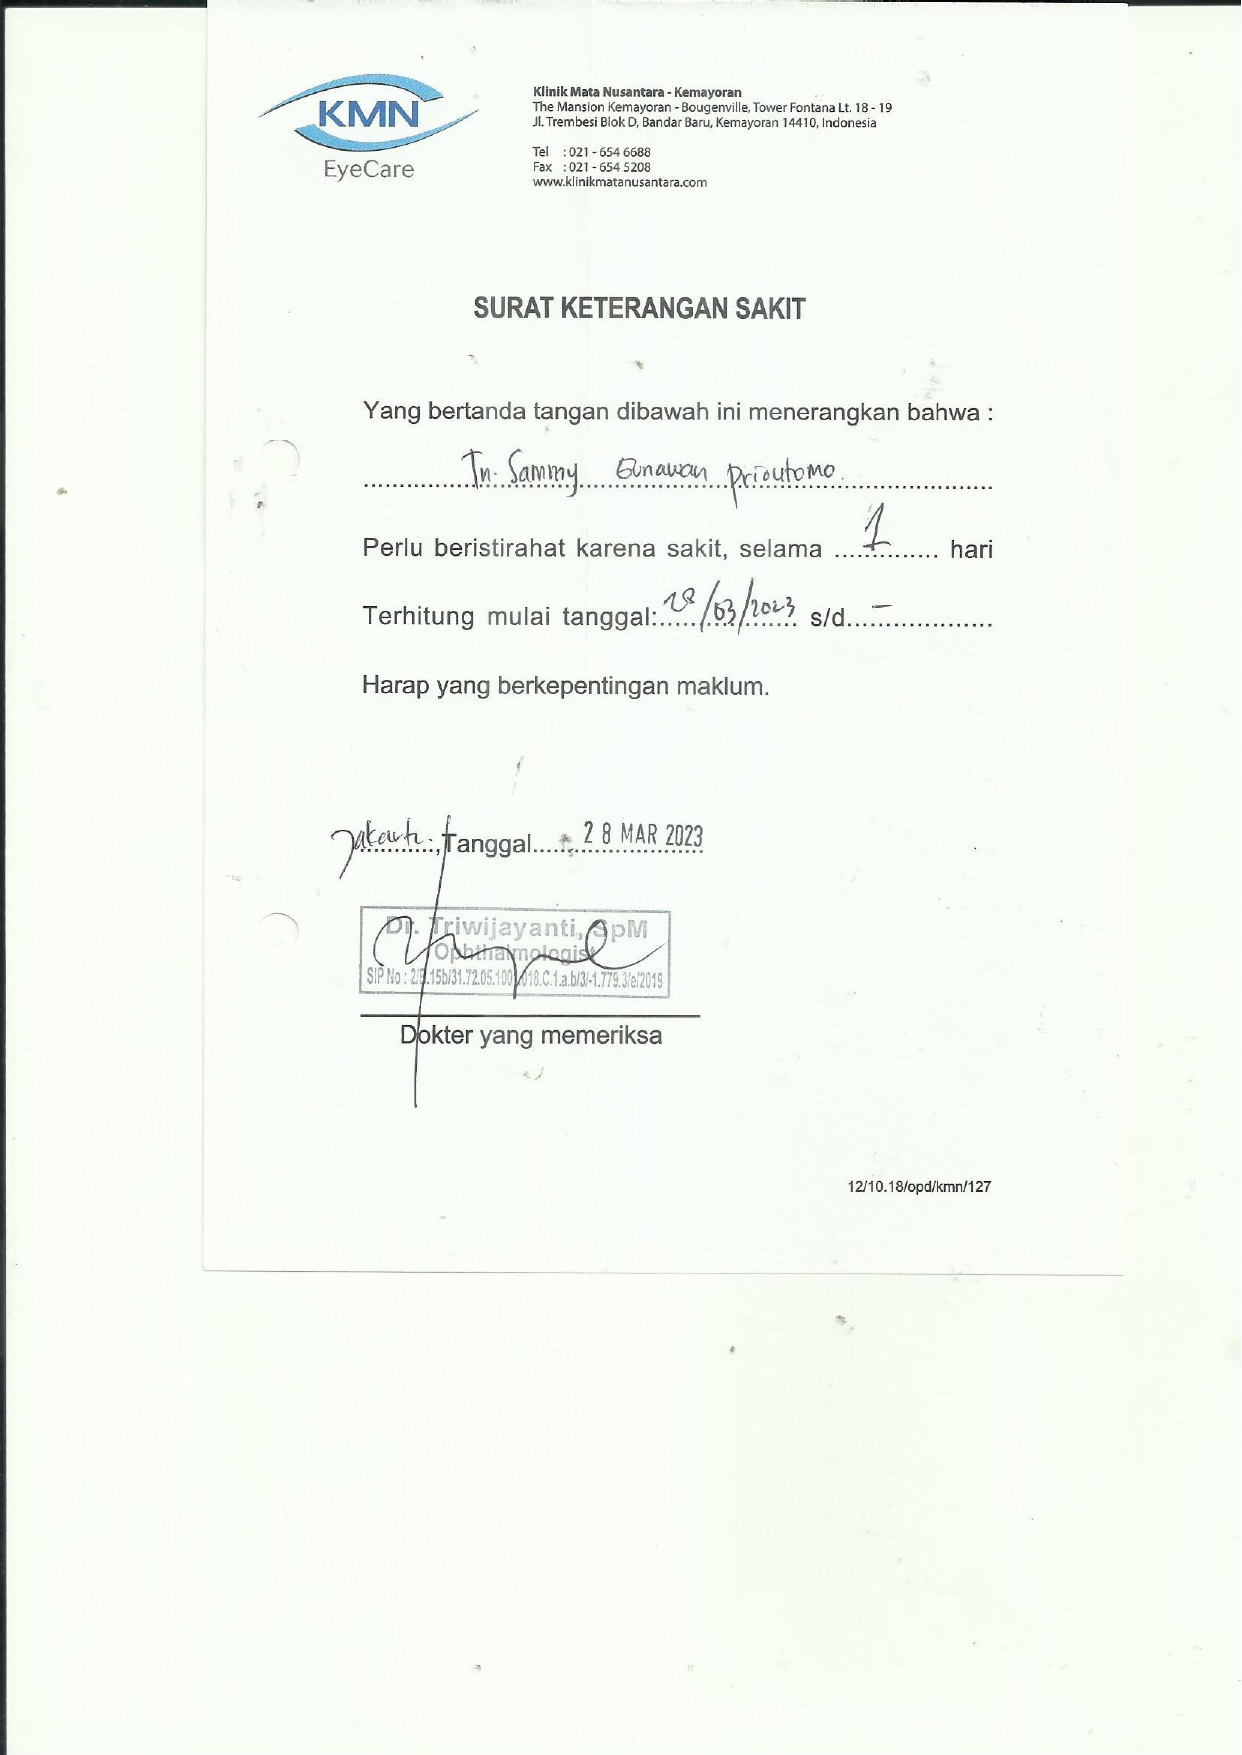 KMN
EyeCare
Klinik Mata Nusantara - Kemayoran
The Mansion Kemayoran - Bougenville, Tower Fontana Lt. 18 - 19
Jl. Trembesi Blok D, Bandar Baru, Kemayoran 14410, Indonesia
Tel : 021 - 654 6688
Fax : 021 - 654 5208
www.klinikmatanusantara.com
SURAT KETERANGAN SAKIT
Yang bertanda tangan dibawah ini menerangkan bahwa :
Tn. Sammy Gunawan Prioutomo.
Perlu beristirahat karena sakit, selama 1 hari
Terhitung mulai tanggal: 28/03/2023 s/d -
Harap yang berkepentingan maklum.
Jakarta, Tanggal 28 MAR 2023
Dr. Triwijayanti, SpM
Ophthalmologist
SIP No :
Dokter yang memeriksa
12/10.18/opd/kmn/127